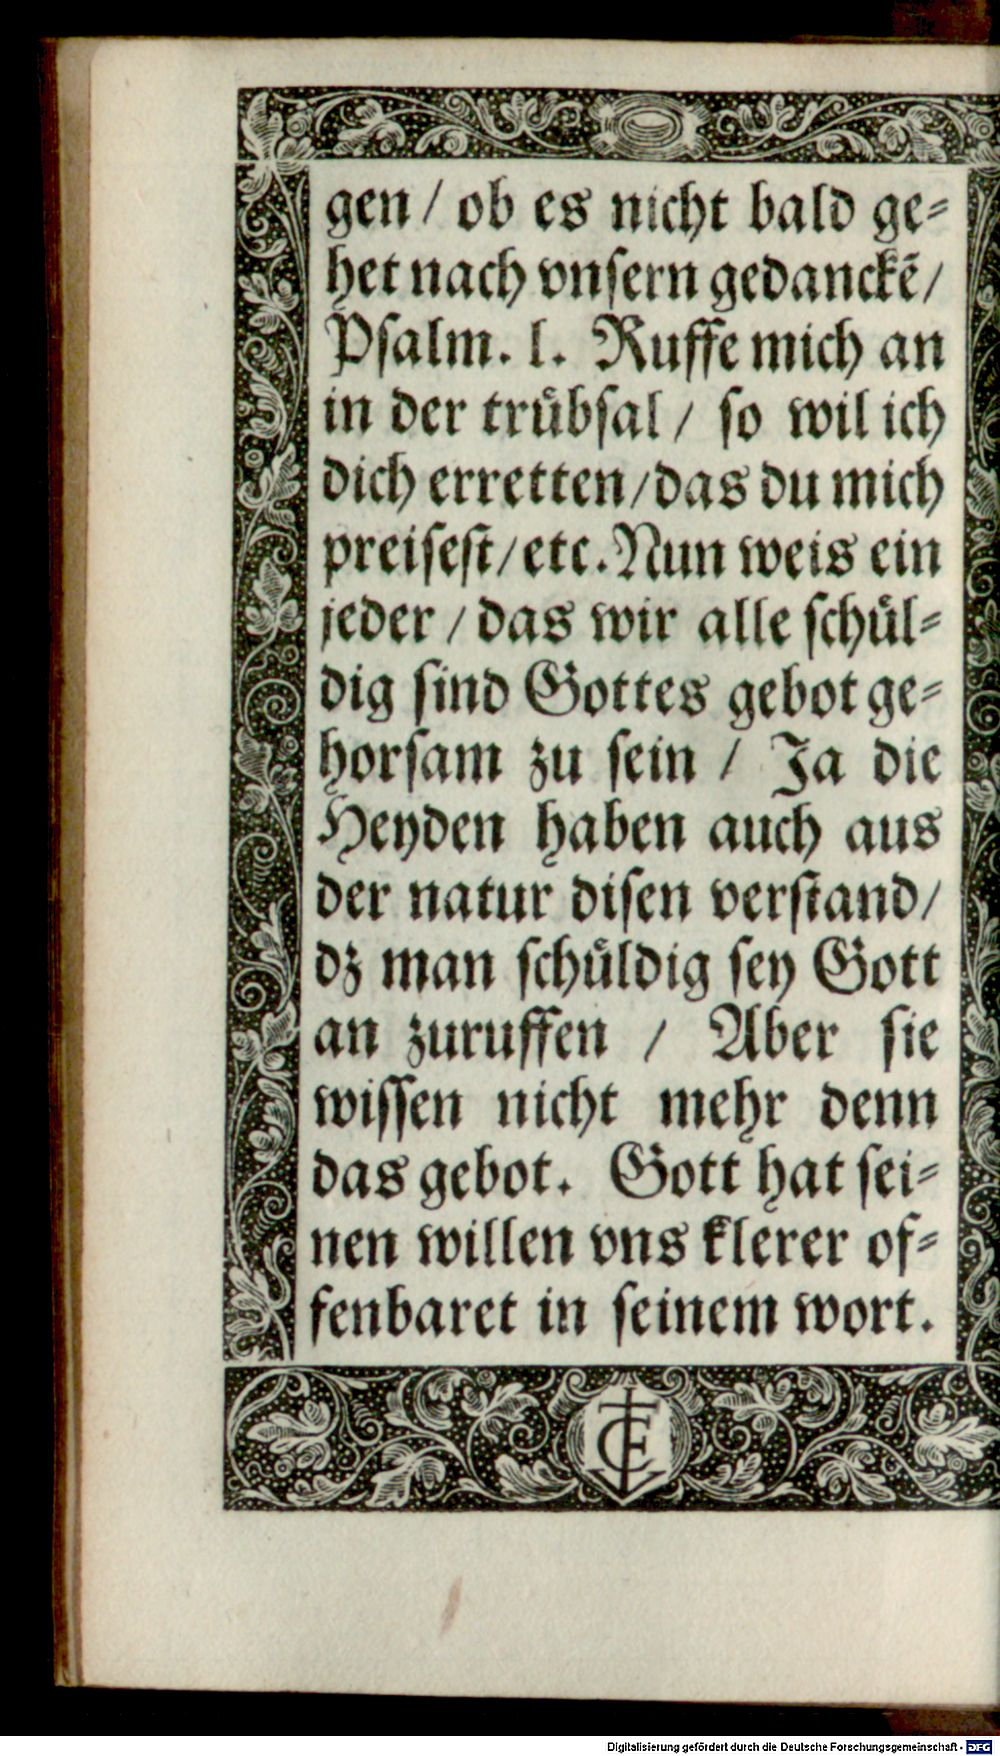 gen / ob es nicht bald ge⸗
het nach vnſern gedanckẽ /
Pſalm. l. Ruffe mich an
in der truͤbſal / ſo wil ich
dich erretten / das du mich
preiſeſt / etc. Nun weis ein
jeder / das wir alle ſchuͤl⸗
dig ſind Gottes gebot ge⸗
horſam zu ſein / Ja die
Heyden haben auch aus
der natur diſen verſtand /
dz man ſchuͤldig ſey Gott
an zuruffen / Aber ſie
wiſſen nicht mehr denn
das gebot. Gott hat ſei⸗
nen willen vns klerer of⸗
fenbaret in ſeinem wort.
Digitalisierung gefördert durch die Deutsche Forschungsgemeinschaft - DFG